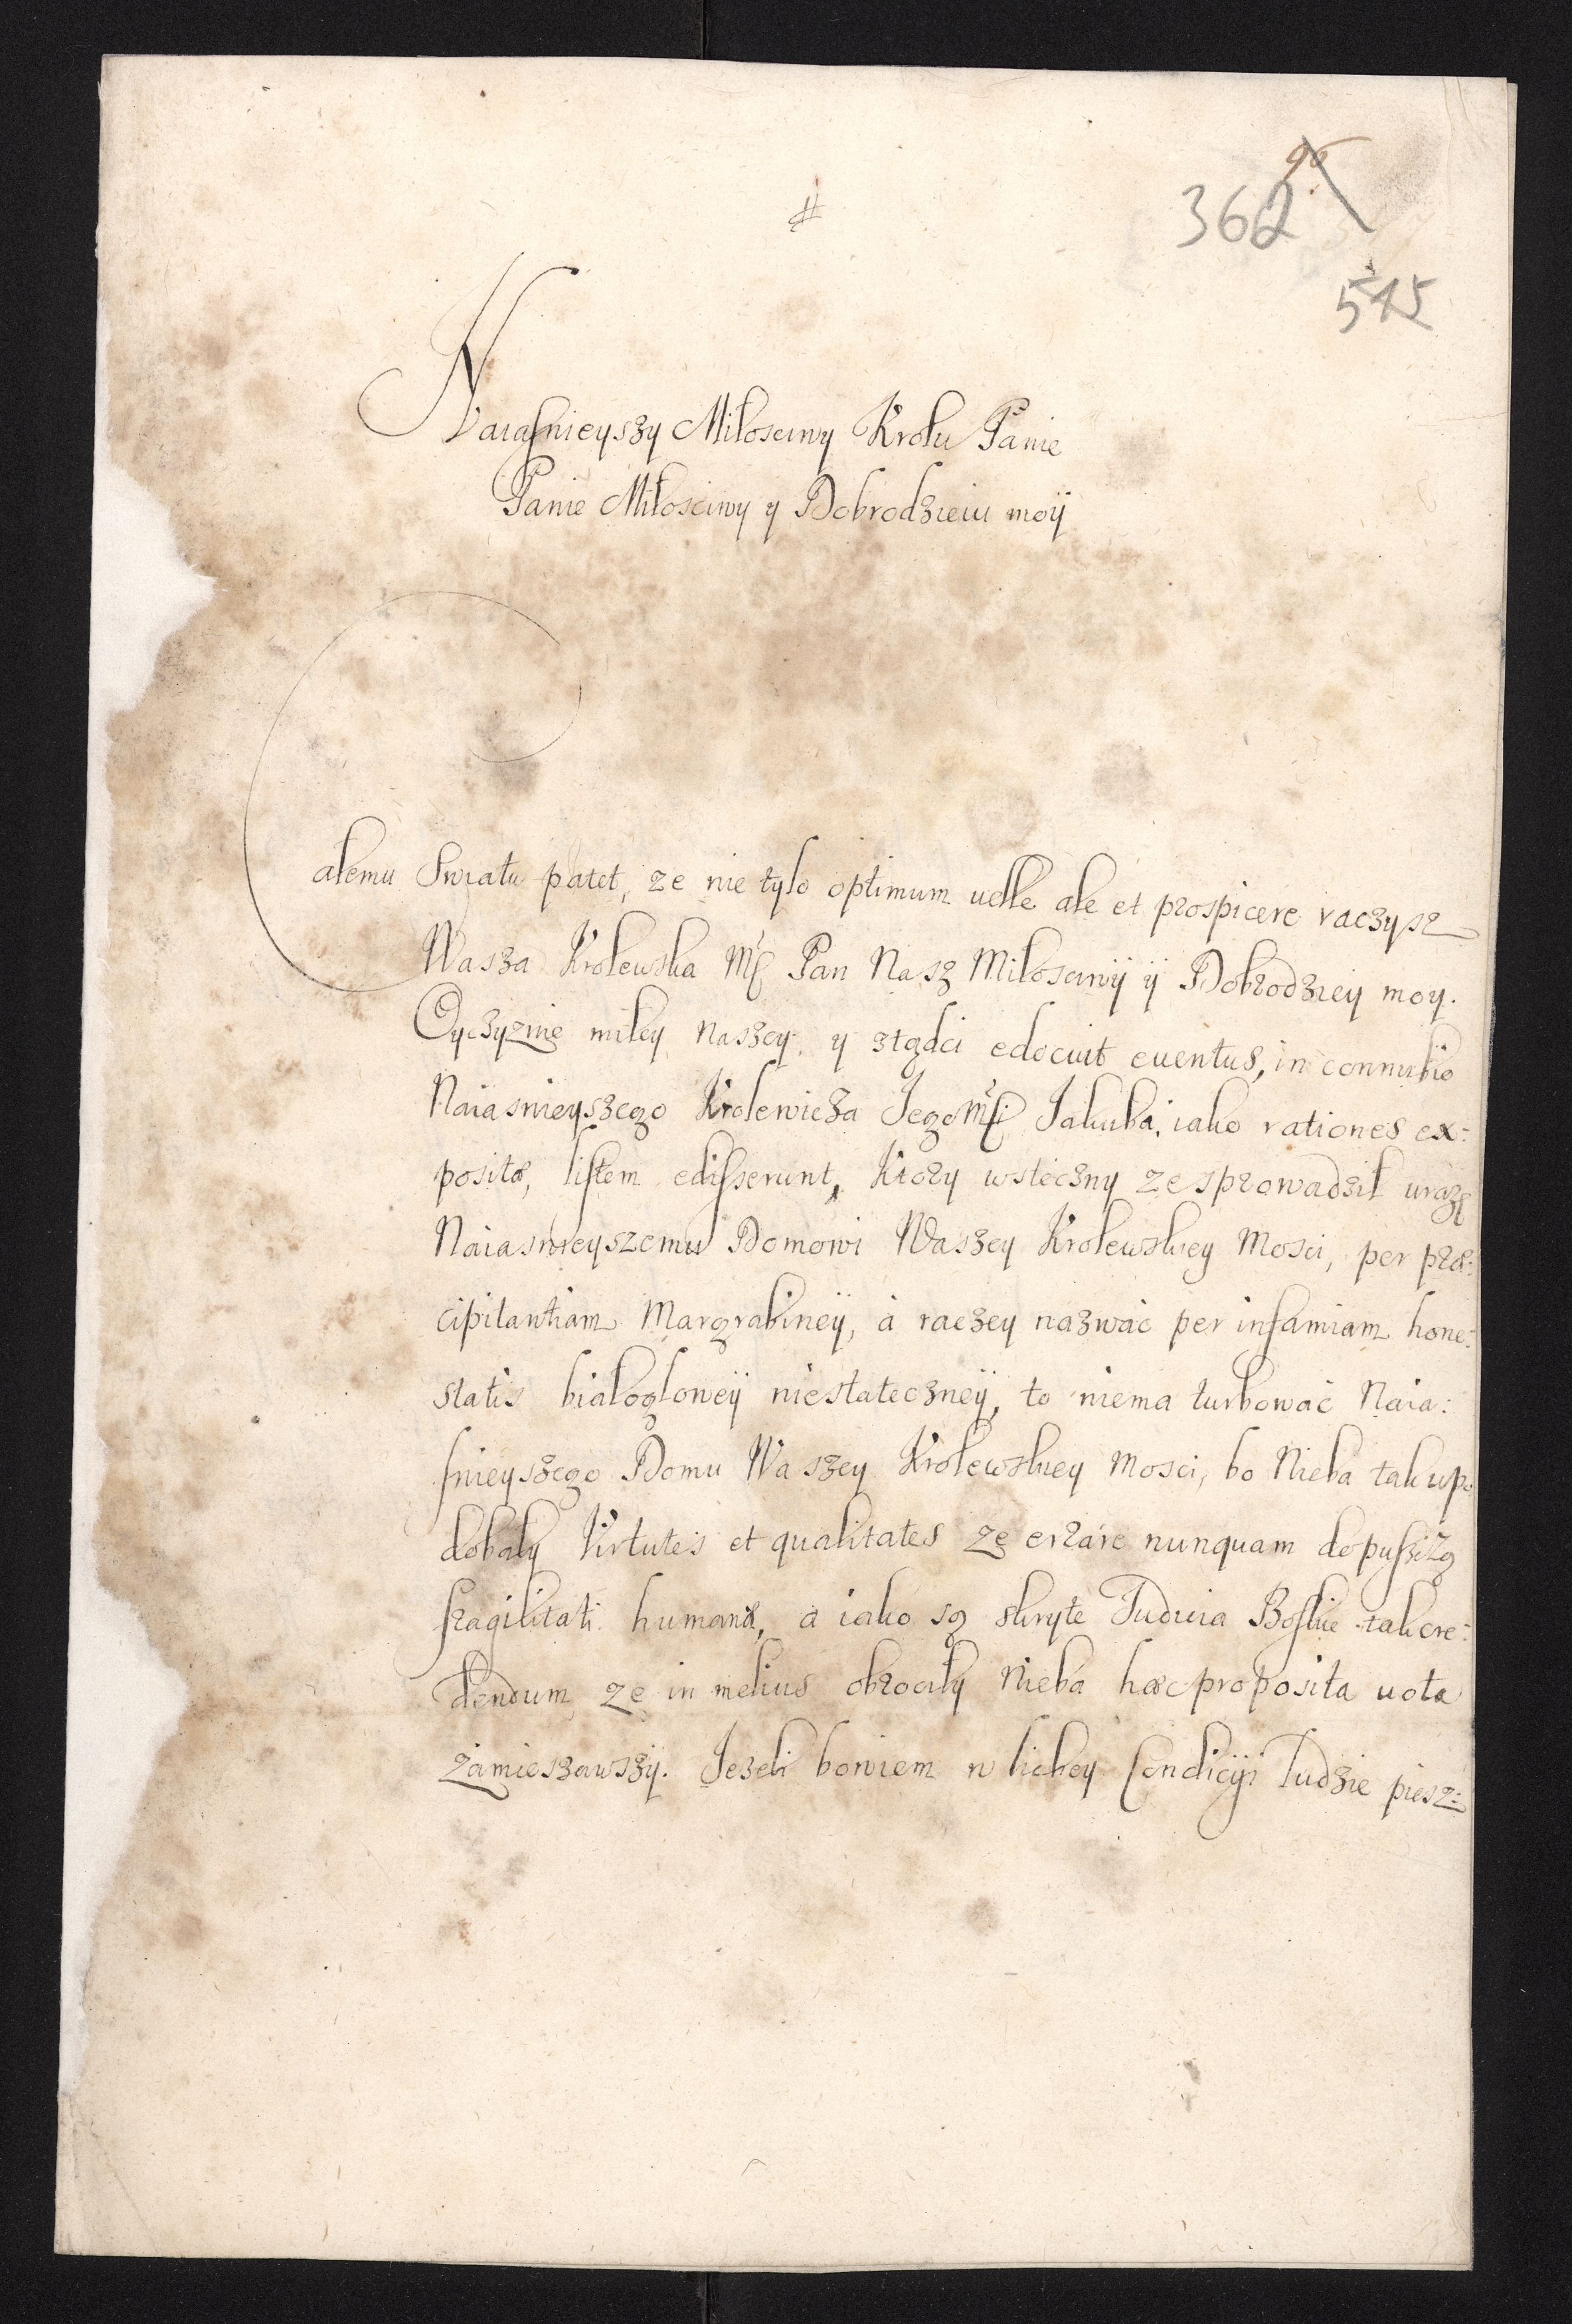 96
362
545
Naiasnieyszy Miłosciwy Krolu Panie
Panie Miłosciwy y Dobrodzieiu moÿ
Całemu Swiatu patet, ze nie tylo optimum uelle ale et prospicere raczysz
Wasza Krolewska Mść Pan Nasz Miłosciwÿ ÿ Dobrodziey moy.
Oyczyznie miłey naszey, y ztądci edocuit euentus, in connubio
Naiasnieyszego Krolewicza Jego Mści Jakuba, iako rationes ex:
positæ, listem edisserunt, Ktory wsteczny ze sprowadził urazę
Naiasnieyszemu Domowi Waszey Krolewskiey Mosci, per præ:
cipitantiam Margrabineÿ, á raczey nazwać per infamiam hone:
statis białogłoweÿ niestateczneÿ, to niema turbować Naia:
snieyszego Domu Waszey Krolewskiey Mosci, bo Nieba tak upo
dobały Virtutes et qualitates ze errare nunquam dopuszczą
fragilitati humanæ, á iako są skryte Iudicia Boskie tak cre:
dendum ze in melius obrociły Nieba hæc proposita uota
zamieszawszÿ. Jezeli bowiem w lichey Condicÿi ludzie piesz: